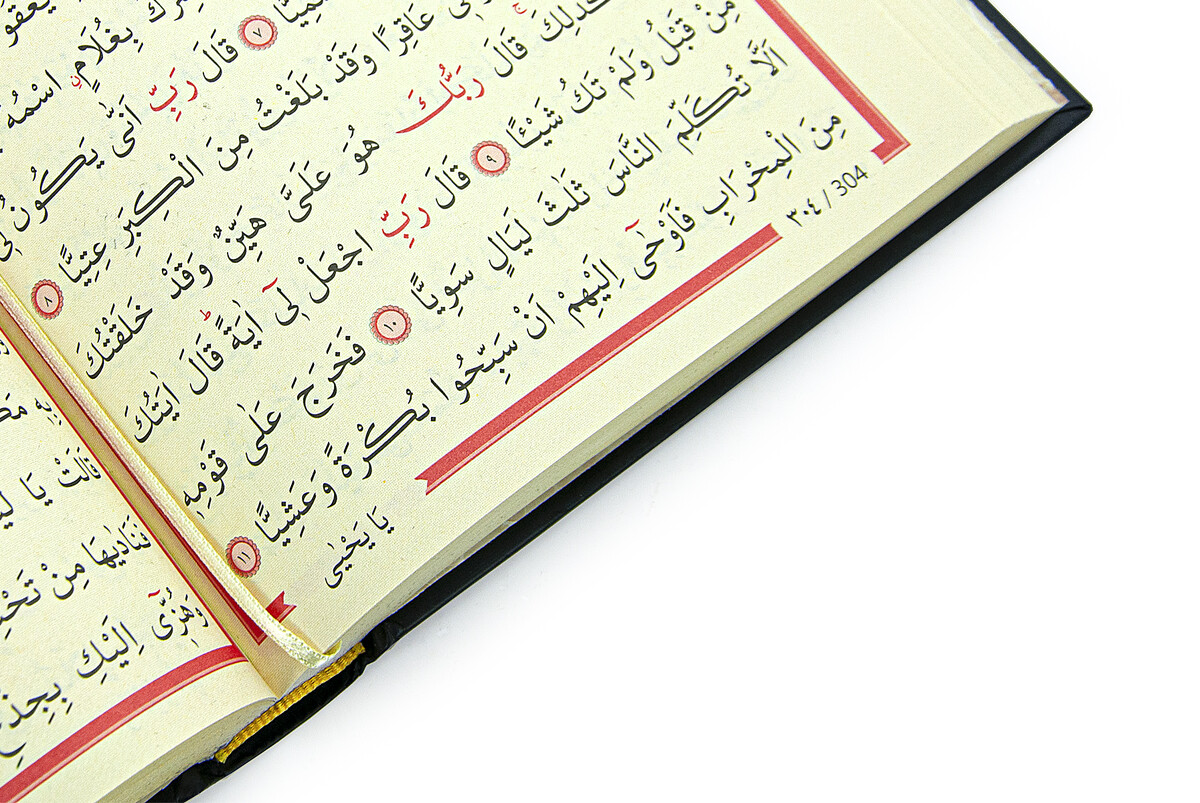 بِغُلَامٍ اسْمُهُ
٧ قَالَ رَبِّ اَنّٰى يَكُونُ لٖى
عَاقِرًا وَقَدْ بَلَغْتُ مِنَ الْكِبَرِ عِتِيًّا ٨
كَذٰلِكَ قَالَ رَبُّكَ هُوَ عَلَىَّ هَيِّنٌ وَقَدْ خَلَقْتُكَ
مِنْ قَبْلُ وَلَمْ تَكُ شَيْـًٔا ٩ قَالَ رَبِّ اجْعَلْ لٖٓى اٰيَةً قَالَ اٰيَتُكَ
اَلَّا تُكَلِّمَ النَّاسَ ثَلٰثَ لَيَالٍ سَوِيًّا ١٠ فَخَرَجَ عَلٰى قَوْمِهٖ
مِنَ الْمِحْرَابِ فَاَوْحٰٓى اِلَيْهِمْ اَنْ سَبِّحُوا بُكْرَةً وَعَشِيًّا ١١
٣٠٤ / 304
يَا يَحْيٰى
بِهٖ
قَالَتْ يَا
فَنَادٰيهَا مِنْ
وَهُزّٖٓى اِلَيْكِ بِجِذْعِ